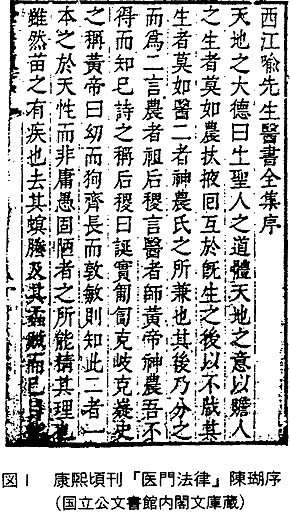 西江喻先生醫書全集序
天地之大德曰生聖人之道體天地之意以贍人
之生者莫如農扶掖囘互於旣生之後以不戕其
生者莫如醫二者神農氏之所兼也其後乃分之
而爲二言農者祖后稷言醫者師黃帝神農吾不
得而知已詩之稱后稷曰誕實匍匐克岐克嶷史
之稱黃帝曰幼而狥齊長而敦敏則知此二者一
本之於天性而非庸愚固陋者之所能精其理也
雖然苗之有疾也去其螟螣及其蟊賊而已
図1 康煕頃刊『医門法律』陳瑚序
(国立公文書館内閣文庫蔵)